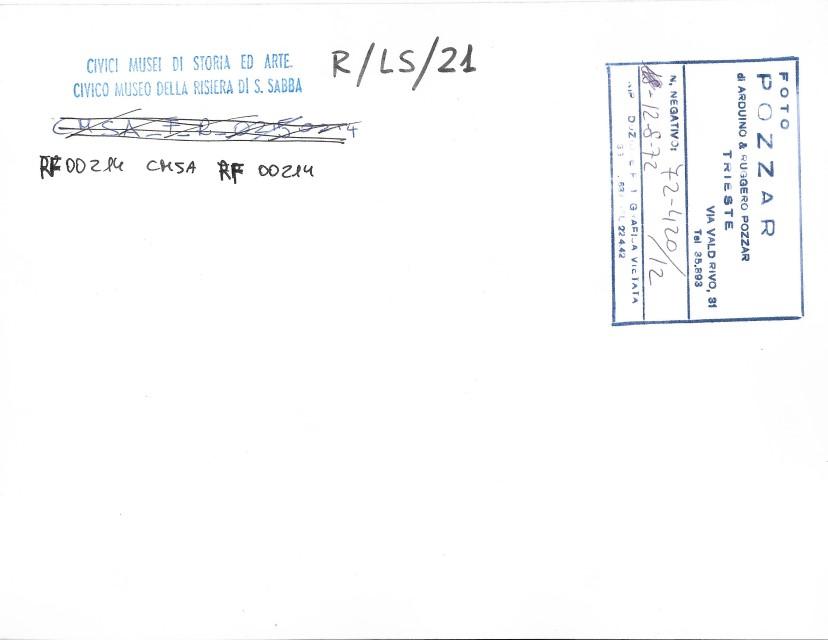 CIVICI MUSEI DI STORIA ED ARTE.
CIVICO MUSEO DELLA RISIERA DI S. SABBA
R/LS/21
RF 00214 CMSA RF 00214
FOTO
POZZAR
di ARDUINO & RUGGERO POZZAR
TRIESTE
VIA VALDIRIVO, 31
Tel 35.893
N, NEGATIVO: 72-420/12
-12-8-72
VIETATA
22442